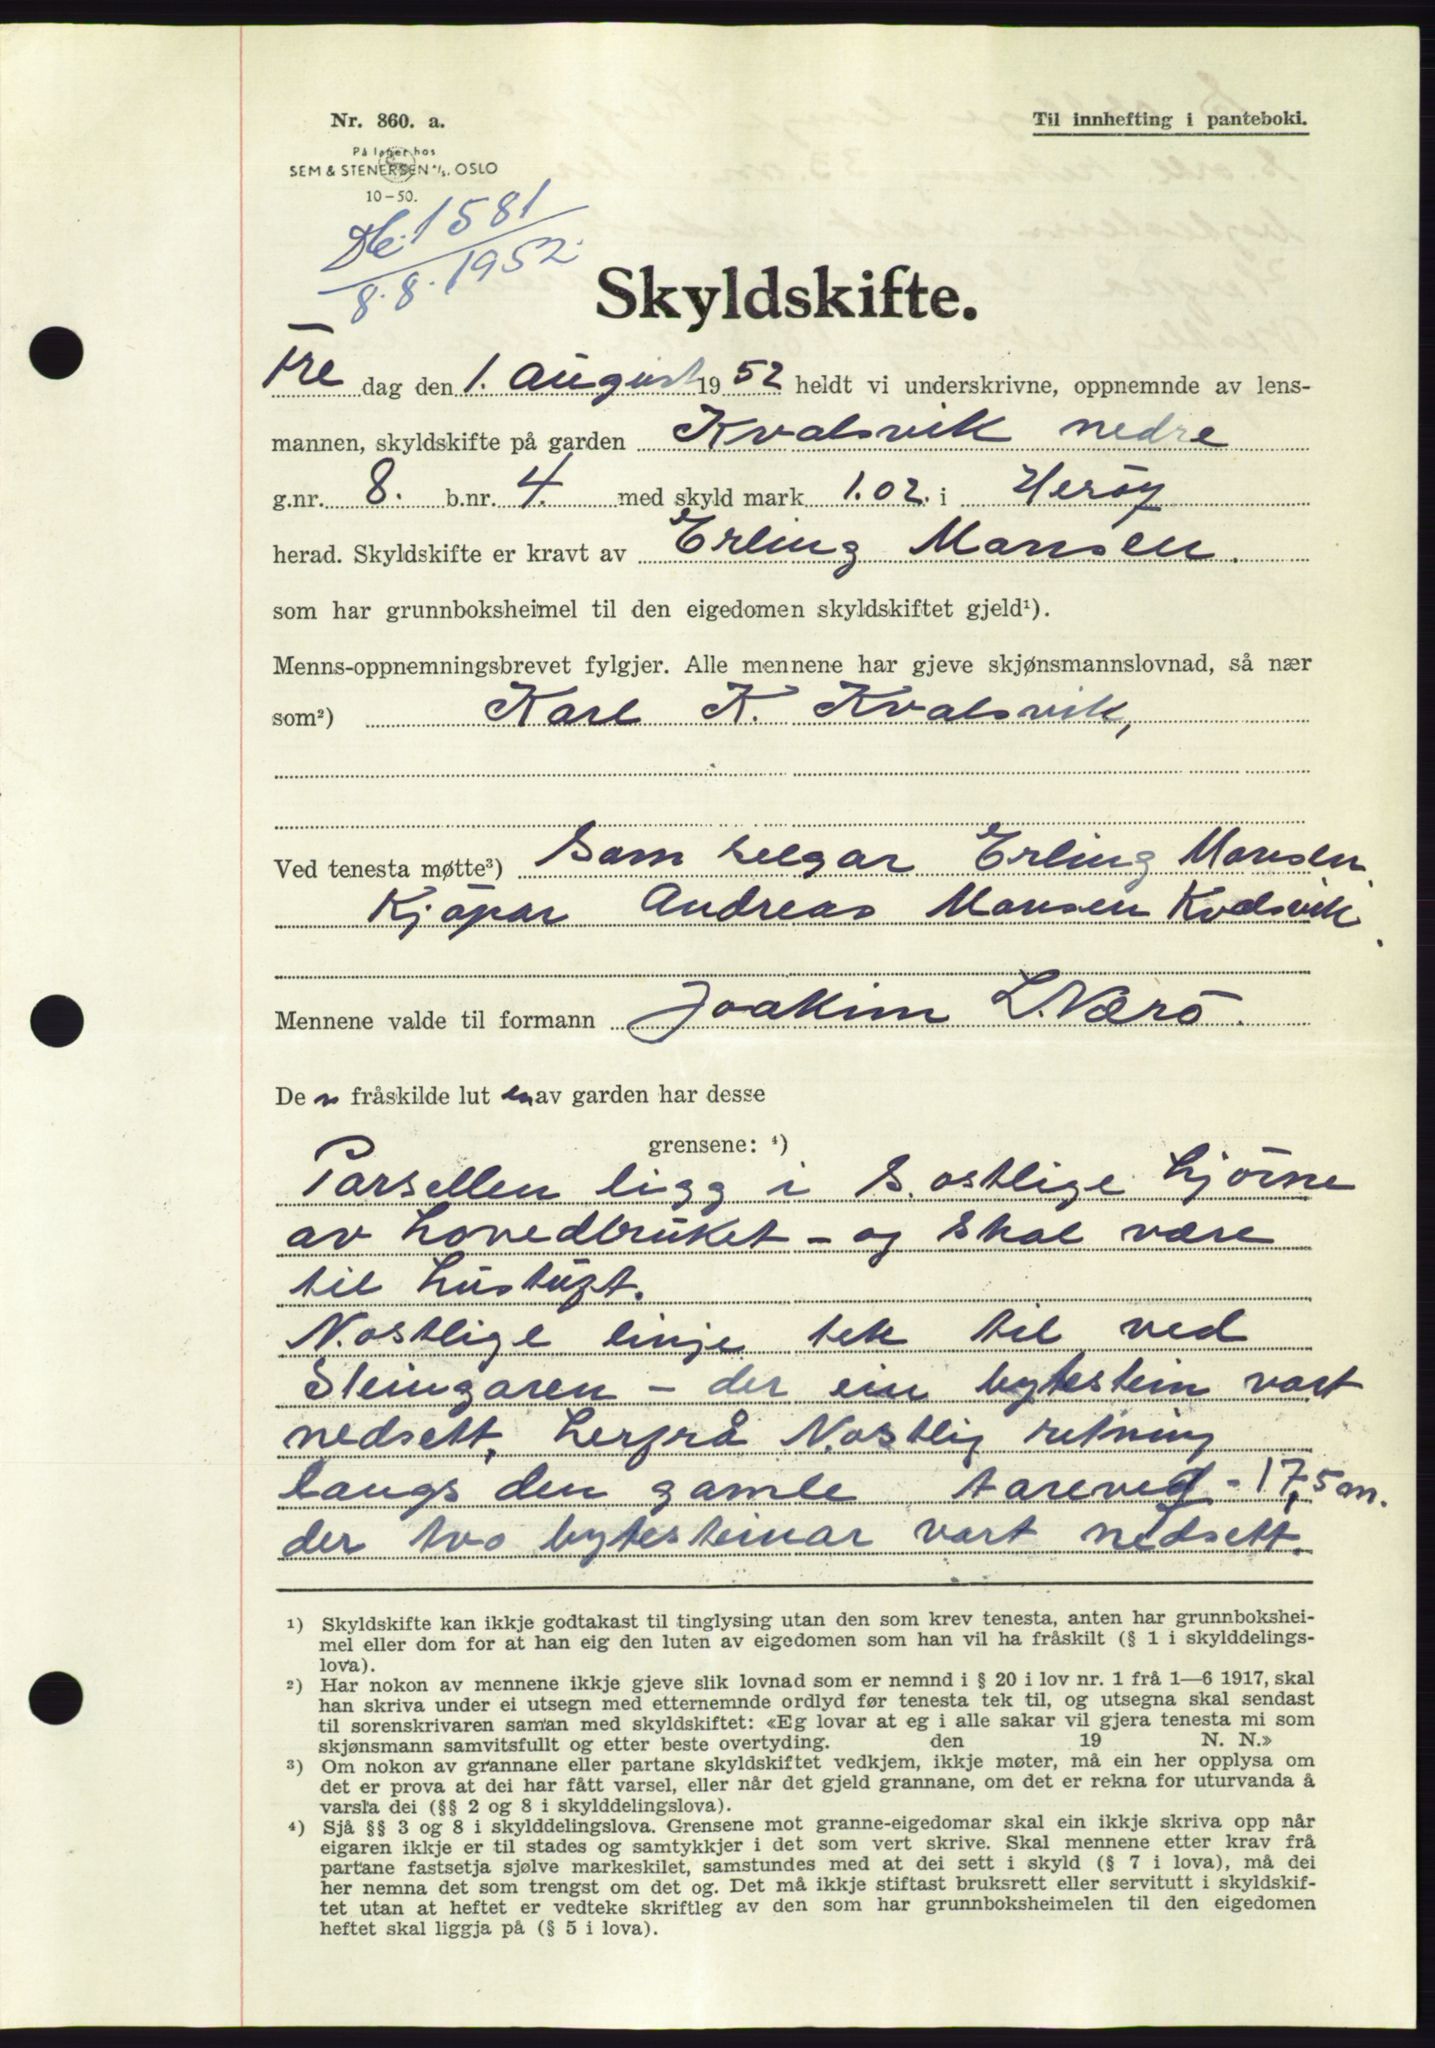 Nr. 860. a.
Til innhefting i panteboki.
På lager hos
SEM & STENERSEN A/S. OSLO
10-50.
Db. 1581
8.8.1952.
Skyldskifte.
Fre dag den 1. august 1952 heldt vi underskrivne, oppnemnde av lens-
mannen, skyldskifte på garden Kvalsvik nedre
g.nr. 8. b.nr. 4. med skyld mark 1.02. i Herøy
herad. Skyldskifte er kravt av Erling Monsen.
som har grunnboksheimel til den eigedomen skyldskiftet gjeld¹).
Menns-oppnemningsbrevet fylgjer. Alle mennene har gjeve skjønsmannslovnad, så nær
som²) Karl K. Kvalsvik,
Ved tenesta møtte³) Som selgar Erling Monsen
Kjöpar Andreas Monsen Kvalsvik.
Mennene valde til formann Joakim L. Nærö.
Den fråskilde luten av garden har desse
grensene: ⁴)
Parsellen ligg i S.ostlige hjörne
av hovedbruket - og skal være
til hustuft.
N.ostlige linje tek til ved
Steingaren - der ein bytestein vart
nedsett, herfrå N.ostlig retning
langs den gamle tareveg - 17,5 m.
der tvo bytesteinar vart nedsett.
1) Skyldskifte kan ikkje godtakast til tinglysing utan den som krev tenesta, anten har grunnbokshei-
mel eller dom for at han eig den luten av eigedomen som han vil ha fråskilt (§ 1 i skylddelings-
lova).
2) Har nokon av mennene ikkje gjeve slik lovnad som er nemnd i § 20 i lov nr. 1 frå 1—6 1917, skal
han skriva under ei utsegn med etternemnde ordlyd før tenesta tek til, og utsegna skal sendast
til sorenskrivaren saman med skyldskiftet: «Eg lovar at eg i alle sakar vil gjera tenesta mi som
skjønsmann samvitsfullt og etter beste overtyding. den 19 N. N.»
3) Om nokon av grannane eller partane skyldskiftet vedkjem, ikkje møter, må ein her opplysa om
det er prova at dei har fått varsel, eller når det gjeld grannane, om det er rekna for uturvanda å
varsla dei (§§ 2 og 8 i skylddelingslova).
4) Sjå §§ 3 og 8 i skylddelingslova. Grensene mot granne-eigedomar skal ein ikkje skriva opp når
eigaren ikkje er til stades og samtykkjer i det som vert skrive. Skal mennene etter krav frå
partane fastsetja sjølve markeskilet, samstundes med at dei sett i skyld (§ 7 i lova), må dei
her nemna det som trengst om det og. Det må ikkje stiftast bruksrett eller servitutt i skyldskif-
tet utan at heftet er vedteke skriftleg av den som har grunnboksheimelen til den eigedomen
heftet skal liggja på (§ 5 i lova).